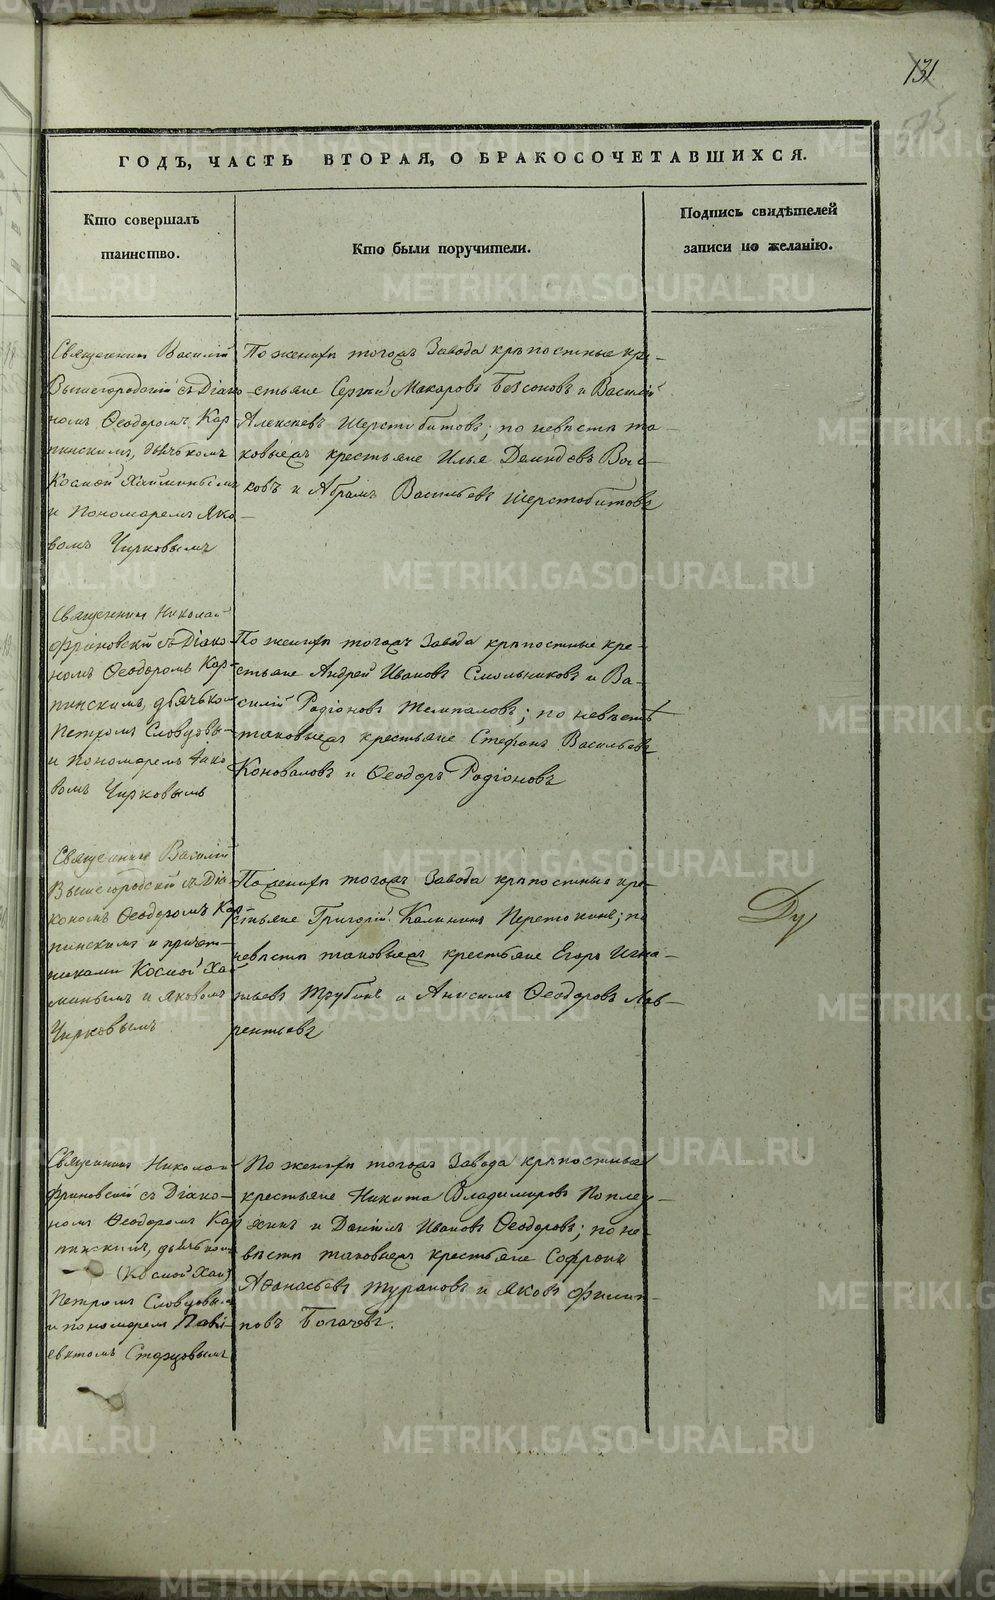 131
575
ГОДЪ, ЧАСТЬ ВТОРАЯ, О БРАКОСОЧЕТАВШИХСЯ.
Кто совершалъ
таинство.
Кто были поручители.
Подпись свидѣтелей
записи по желанію.
Священникъ Василій
Вышегородскій съ Діако-
номъ Ѳеодоромъ Кар
пинскимъ, дьячкомъ
Космой Хайминымъ
и Пономаремъ Яко
вомъ Чирковымъ
По женихѣ тогожъ Завода крѣпостные кре-
стьяне Сергѣй Макаровъ Безсоновъ и Василій
Алексѣевъ Шерстобитовъ; по невѣстѣ та-
ковыежъ крестьяне Илья Демидовъ Вол-
ковъ и Абрамъ Васильевъ Шерстобитовъ
Священникъ Николай
Фриновскій съ Діако-
номъ Ѳеодоромъ Кар-
пинскимъ, дьячкомъ
Петромъ Словцовы-
и Пономаремъ Яко
вомъ Чирковымъ
По женихѣ тогожъ Завода крѣпостные кре-
стьяне Андрей Ивановъ Смольниковъ и Ва-
силій Родіоновъ; по невѣстѣ
таковыежъ крестьяне Стефанъ Васильевъ
Коноваловъ и Ѳеодоръ Родіоновъ
Священникъ Василій
Вышегородскій съ Діа
кономъ Ѳеодоромъ Кар-
пинскимъ и причет-
никами Космой Хай
минымъ и Яковомъ
Чирковымъ
По женихѣ тогожъ Завода крѣпостные кре-
стьяне Григорій Калининъ; по
невѣстѣ таковыежъ крестьяне Егоръ Игна-
тьевъ Трубинъ и Анисимъ Ѳеодоровъ Лав-
рентьевъ
Ду
Священникъ Николай
Фриновскій съ Діако-
номъ Ѳеодоромъ Кар
пинскимъ, дьячкомъ
(Космой Хай)
Петромъ Словцовымъ
и пономаремъ
Старцовымъ
По женихѣ тогожъ Завода крѣпостные
крестьяне Никита Владимировъ Поплеу-
хинъ и Данилъ Ивановъ Ѳеодоровъ; по не-
вѣстѣ таковыежъ крестьяне Софронъ
Аѳанасьевъ Турановъ и Яковъ Филип-
повъ Богачевъ.
METRIKI.GASO-URAL.RU